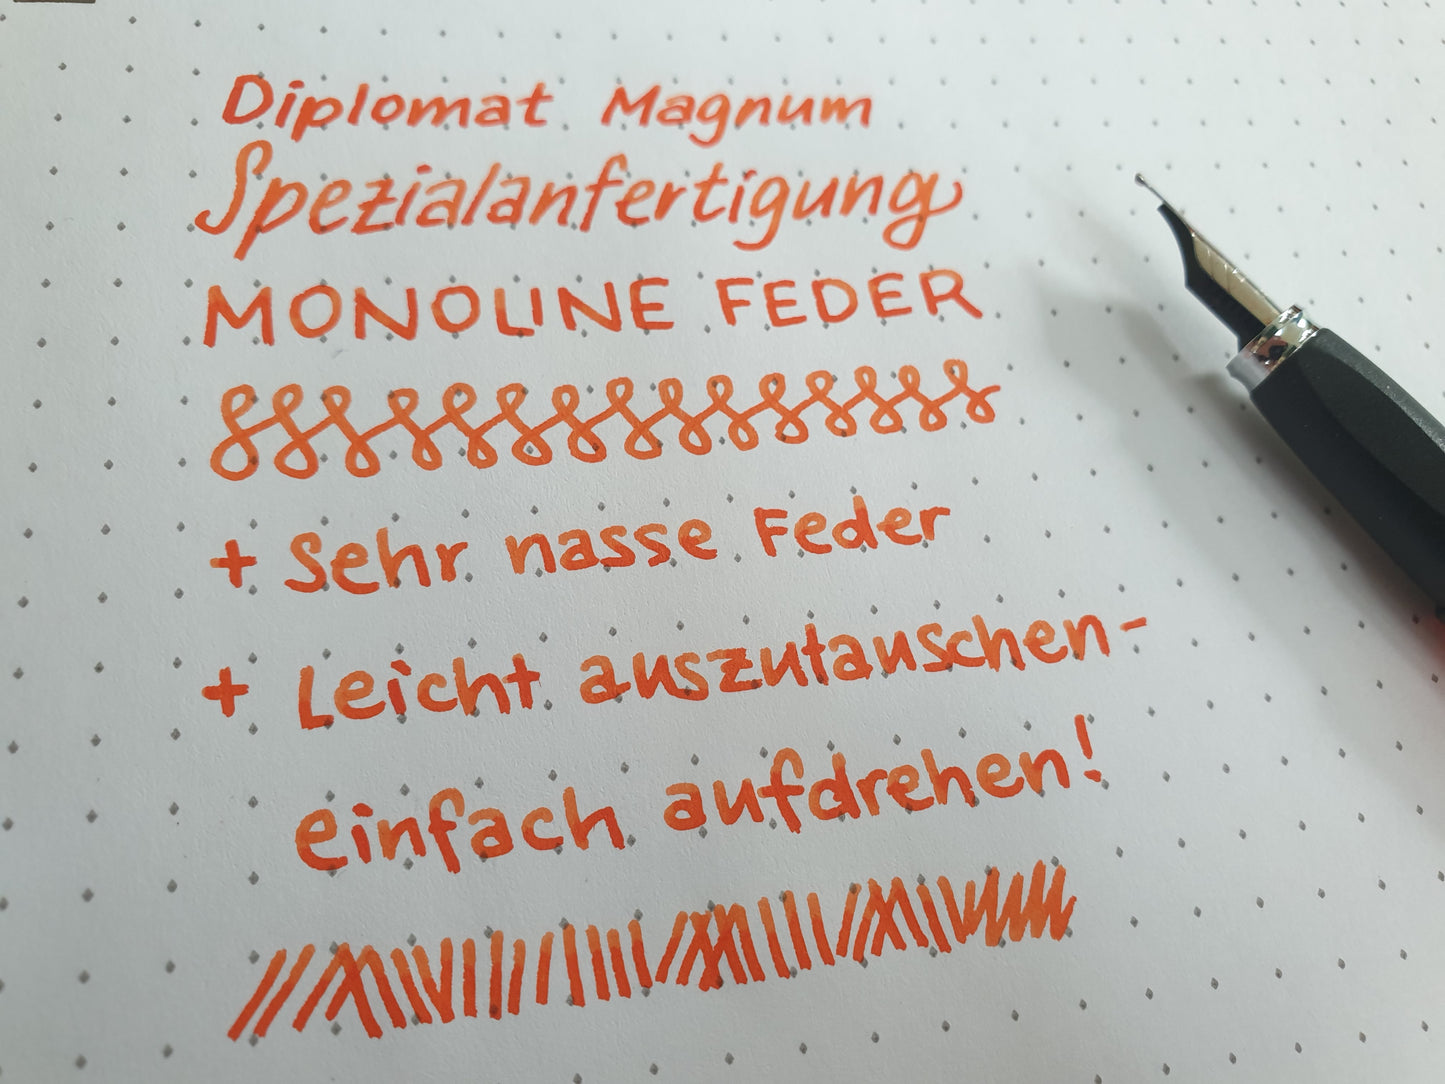 Diplomat Magnum
Spezialanfertigung
MONOLINE FEDER
+ Sehr nasse Feder
+ Leicht auszutauschen-
einfach aufdrehen!